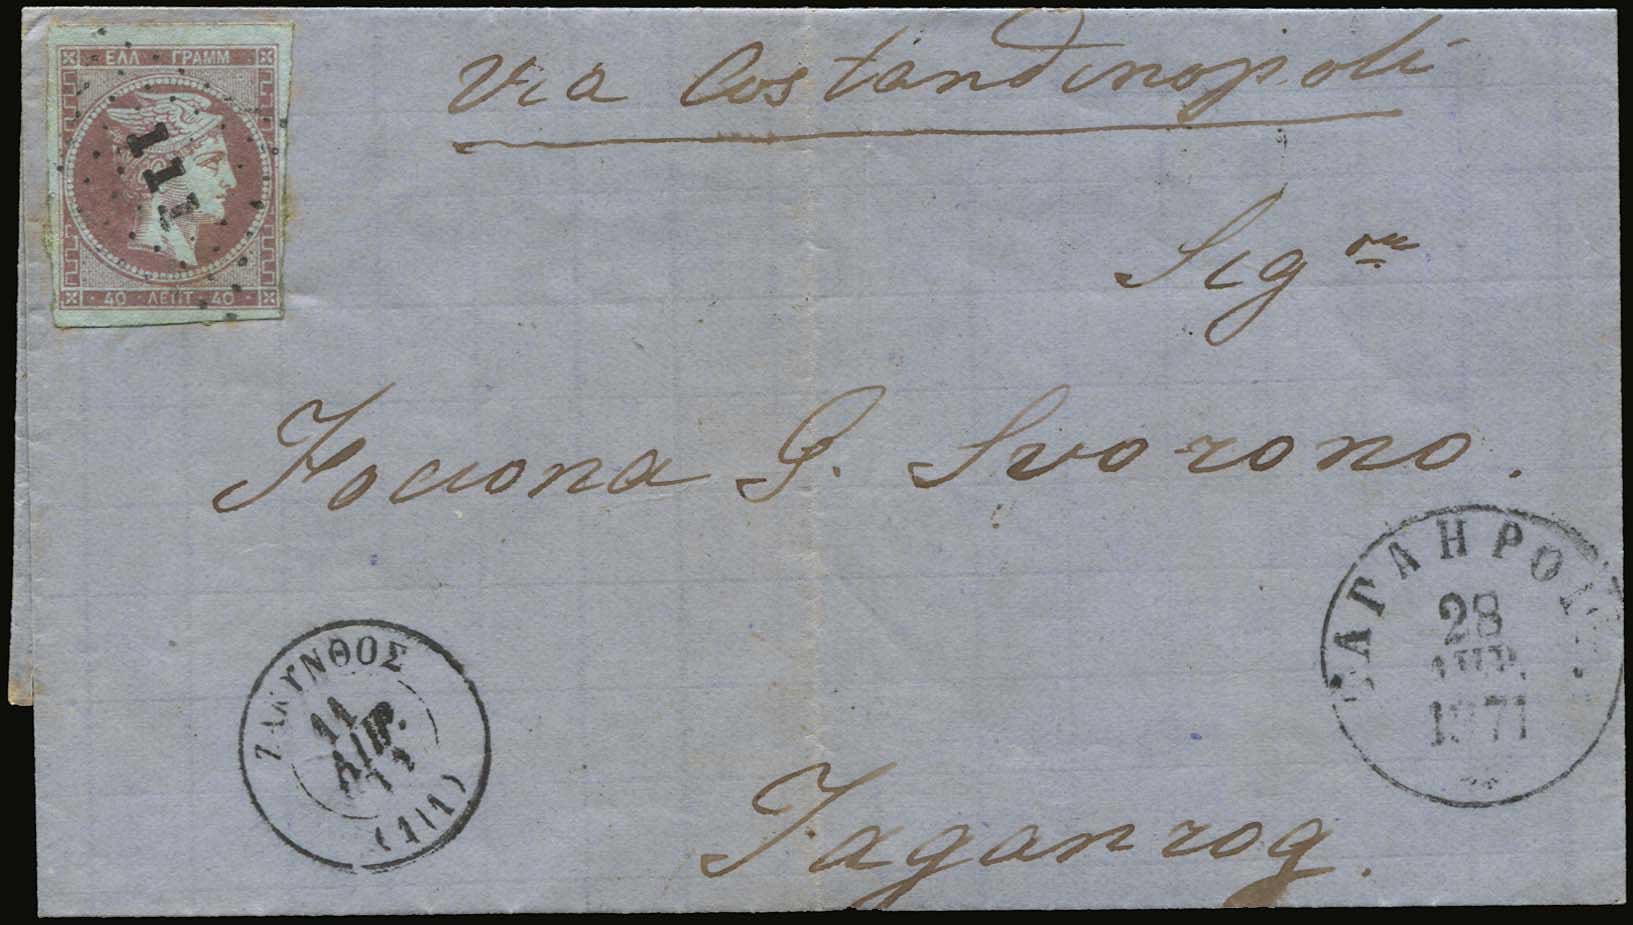 ΕΛΛ ΓΡΑΜΜ
111
40 ΛΕΠΤ 40
via Costandinopoli
Sig re
Fociona G. Svorono.
Taganrog.
ΖΑΚΥΝΘΟΣ
11
ΑΠΡ.
71
(111)
ТАГАНРОГЪ
28
АПР.
1871